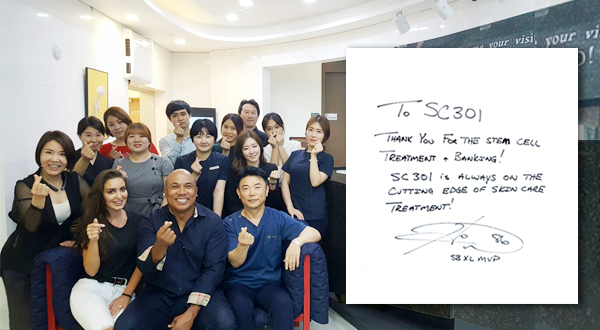 your visi, your vi
To SC301
THANK YOU FOR THE STEM CELL
TREATMENT + BANKING!
SC301 IS ALWAYS ON THE
CUTTING EDGE OF SKIN CARE
TREATMENT!
86
SB XL MVP